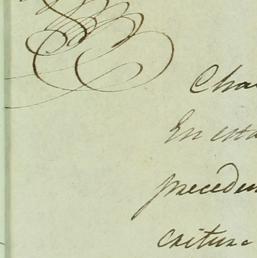 Cha
En esta
preceden
critura